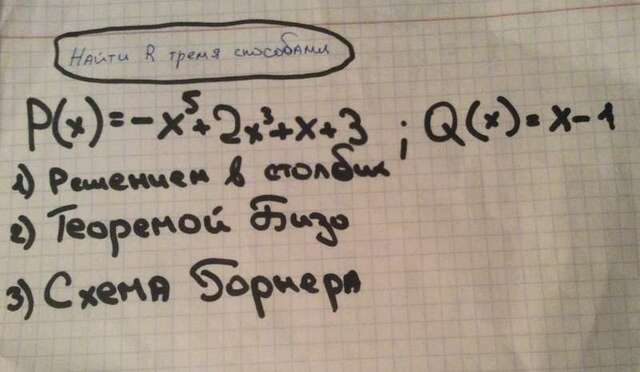 Найти R тремя способами
P(x)=-x⁵+2x³+x+3 ; Q(x)=x-1
1) Решением в столбик
2) Теоремой Бизо
3) Схема Горнера